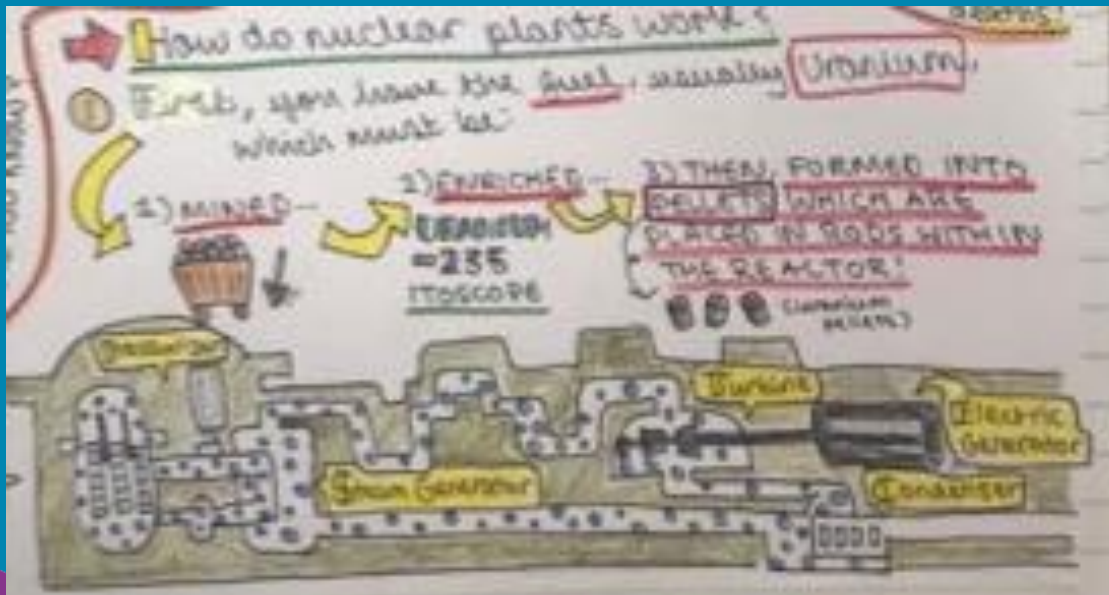 deaths!
How do nuclear plants work?
① First, you have the fuel, usually Uranium,
which must be:
1) MINED–
2) ENRICHED–
URANIUM
–235
ITOSCOPE
3) THEN, FORMED INTO
PELLETS WHICH ARE
PLACED IN RODS WITHIN
THE REACTOR!
(uranium
pellets)
Pressurizer
Steam Generator
Turbine
Electric
Generator
Condenser